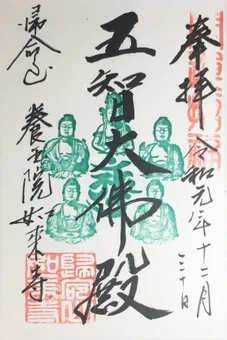 奉拝
令和元年十二月
二十日
五智大佛殿
帰命山
養玉院如来寺